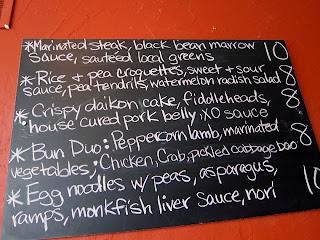 *Marinated steak, black bean marrow 10
sauce, sauteéd local greens
*Rice + pea croquettes, sweet + sour 8
sauce, pea tendrils, watermelon radish salad
*Crispy daikon cake, fiddleheads, 8
house cured pork belly, XO sauce
*Bun Duo: Peppercorn lamb, marinated 8
vegetables; Chicken, Crab, pickled cabbage bao
*Egg noodles w/ peas, asparagus, 10
ramps, monkfish liver sauce, nori